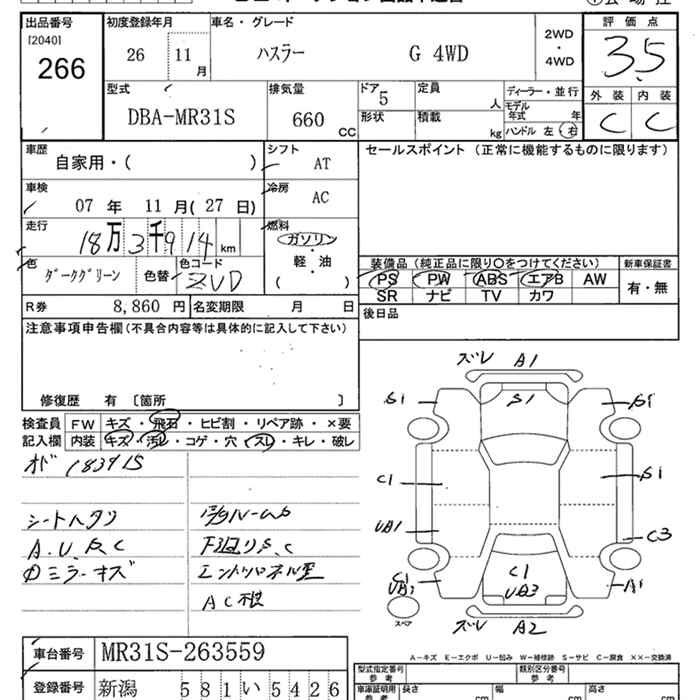 出品番号 初度登録年月 車名・グレード 評価点
[2040]
266
26 11 月
ハスラー G 4WD
2WD
・
4WD
3.5
型式 排気量 ドア 定員 ディーラー・並行 外装 内装
DBA-MR31S 660 CC 5 人
モデル年式 年
形状 積載 kg ハンドル 左 右
C C
車歴 シフト セールスポイント（正常に機能するものに限ります）
自家用・( ) AT
車検 冷房
07 年 11 月( 27 日) AC
走行 燃料
18万3千914 km
ガソリン
軽・油
( )
色 色替 色コード
ダークグリーン ZVD
装備品（純正品に限り○をつけてください） 新車保証書
PS PW ABS エアB AW 有・無
SR ナビ TV カワ
R券 8,860 円 名変期限 月 日
後日品
注意事項申告欄(不具合内容等は具体的に記入して下さい)
修復歴 有 〔箇所 〕
検査員 FW キズ・飛石・ヒビ割・リペア跡・×要
記入欄 内装 キズ・汚レ・コゲ・穴・スレ・キレ・破レ
オド 183915
シートヘタリ
A.U.S.C 下廻りS.C
ミラーキズ
AC根
ズレ A1
S1 S1 S1
C1 S1
UB1 C3
C1
UB1
C1
UB3
A1
スペア
ズレ A2
A－キズ E－エクボ U－凹み W－補修跡 S－サビ C－腐食 ××－交換済
車台番号 MR31S-263559
型式指定番号 参考 類別区分番号 参考
登録番号 新潟 581 い 5426
車庫証明用 参考 長さ cm 幅 cm 高さ cm